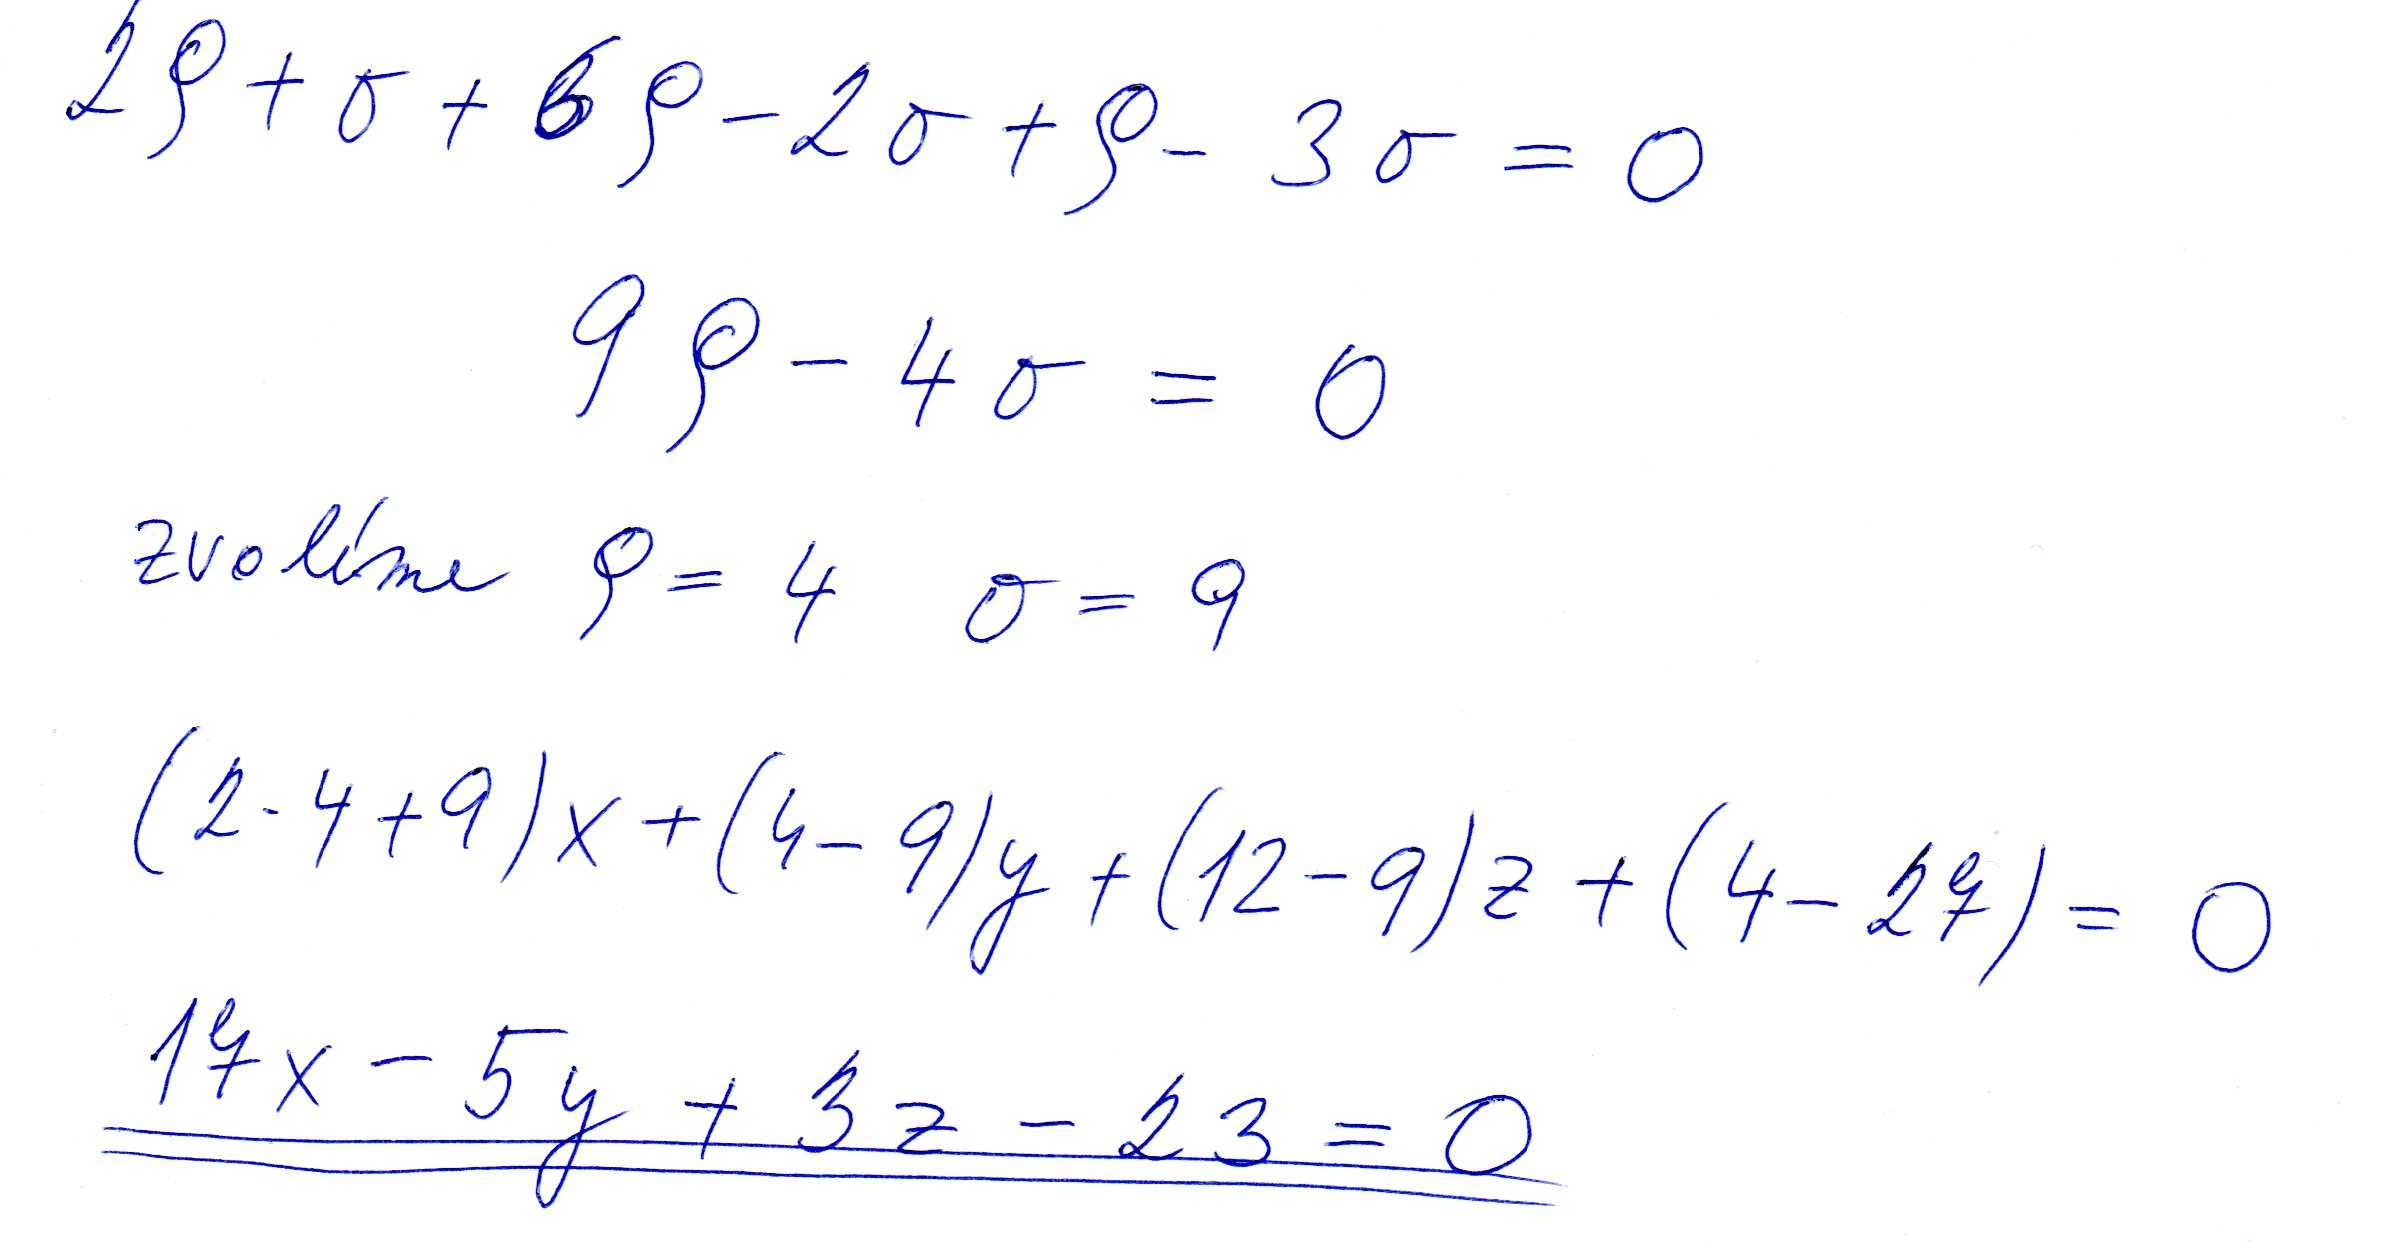 2ρ + σ + 6ρ - 2σ + ρ - 3σ = 0
9ρ - 4σ = 0
zvolíme ρ = 4 σ = 9
(2·4+9)x + (4-9)y + (12-9)z + (4-27) = 0
17x - 5y + 3z - 23 = 0